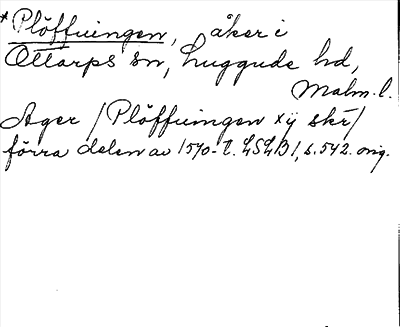 *Plöffuingen, åker i
Ottarps sn, Luggude hd,
Malm. l.
Ager / Plöffuingen xij skr /
förra delen av 1570-t. LSLB1, s. 542. orig.